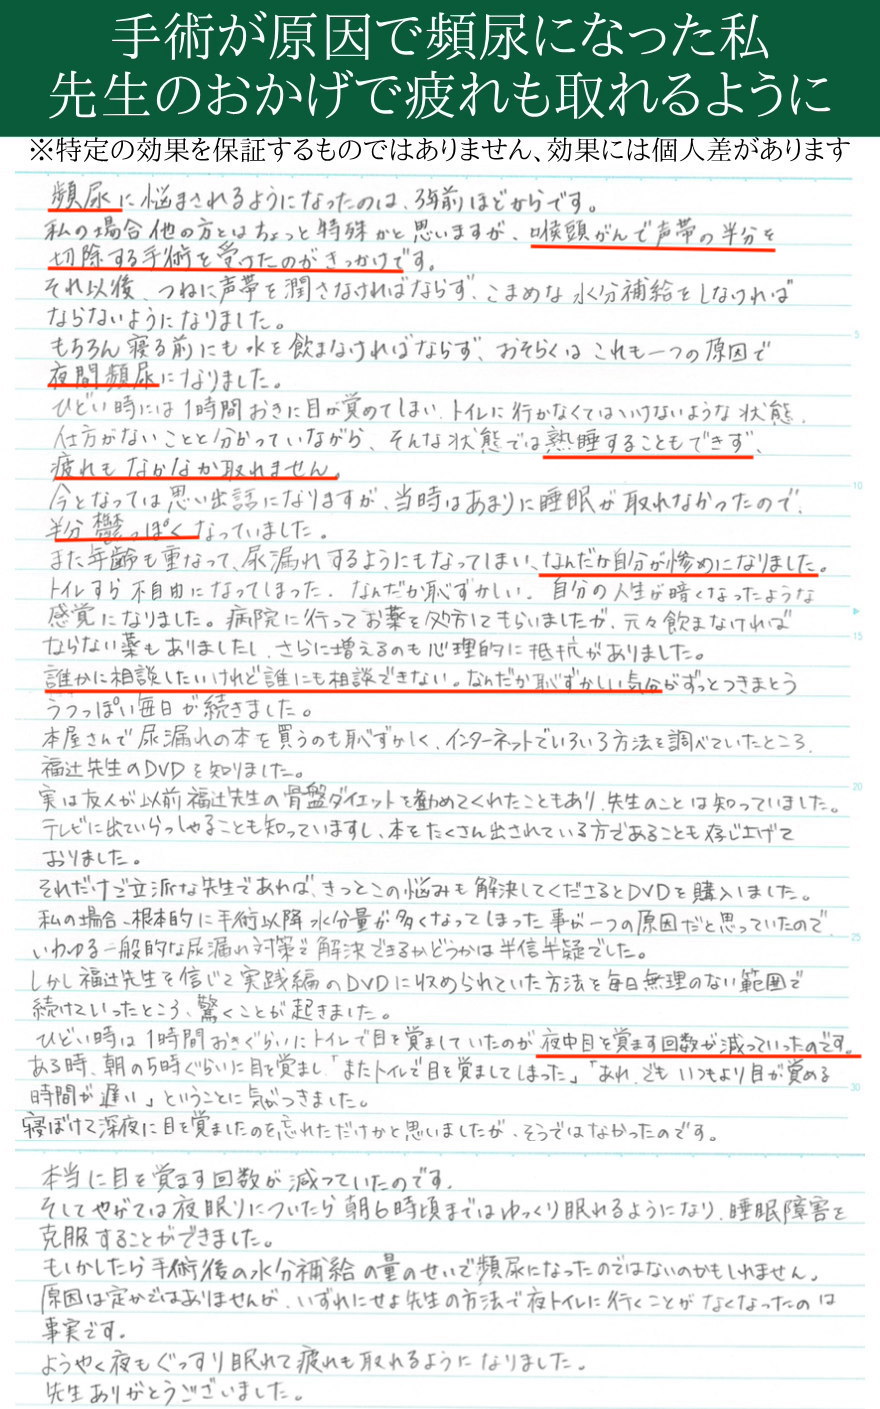 手術が原因で頻尿になった私
先生のおかげで疲れも取れるように
※特定の効果を保証するものではありません、効果には個人差があります
頻尿に悩まされるようになったのは、3年前ほどからです。
私の場合他の方とはちょっと特殊かと思いますが、喉頭がんで声帯の半分を
切除する手術を受けたのがきっかけです。
それ以後、つねに声帯を潤さなければならず、こまめな水分補給をしなければ
ならないようになりました。
5
もちろん寝る前にも水を飲まなければならず、おそらくはこれも一つの原因で
夜間頻尿になりました。
ひどい時には1時間おきに目が覚めてしまい、トイレに行かなくてはいけないような状態、
仕方がないことと分かっていながら、そんな状態では熟睡することもできず、
疲れもなかなか取れません。
10
今となっては思い出話になりますが、当時はあまりに睡眠が取れなかったので、
半分鬱っぽくなっていました。
また年齢も重なって、尿漏れするようにもなってしまい、なんだか自分が惨めになりました。
トイレすら不自由になってしまった、なんだか恥ずかしい、自分の人生が暗くなったような
感覚になりました。病院に行ってお薬を処方してもらいましたが、元々飲まなければ
15
ならない薬もありましたし、さらに増えるのも心理的に抵抗がありました。
誰かに相談したいけれど誰にも相談できない。なんだか恥ずかしい気分がずっとつきまとう
うつっぽい毎日が続きました。
本屋さんで尿漏れの本を買うのも恥ずかしく、インターネットでいろいろ方法を調べていたところ、
福辻先生のDVDを知りました。
20
実は友人が以前福辻先生の骨盤ダイエットを勧めてくれたこともあり、先生のことは知っていました。
テレビに出ていらっしゃることも知っていますし、本をたくさん出されている方であることも存じ上げて
おりました。
それだけご立派な先生であれば、きっとこの悩みも解決してくださるとDVDを購入しました。
私の場合、根本的に手術以降水分量が多くなってしまった事が一つの原因だと思っていたので、
25
いわゆる一般的な尿漏れ対策で解決できるかどうかは半信半疑でした。
しかし福辻先生を信じて実践編のDVDに収められていた方法を毎日無理のない範囲で
続けていったところ、驚くことが起きました。
ひどい時は1時間おきぐらいにトイレで目を覚ましていたのが夜中目を覚ます回数が減っていったのです。
ある時、朝の5時ぐらいに目を覚まし「またトイレで目を覚ましてしまった」「あれ、でもいつもより目が覚める
30
時間が遅い」ということに気がつきました。
寝ぼけて深夜に目を覚ましたのを忘れただけかと思いましたが、そうではなかったのです。
本当に目を覚ます回数が減っていたのです。
そしてやがては夜眠りについたら朝6時頃まではゆっくり眠れるようになり、睡眠障害を
克服することができました。
もしかしたら手術後の水分補給の量のせいで頻尿になったのではないのかもしれません。
原因は定かではありませんが、いずれにせよ先生の方法で夜トイレに行くことがなくなったのは
事実です。
ようやく夜もぐっすり眠れて疲れも取れるようになりました。
先生ありがとうございました。